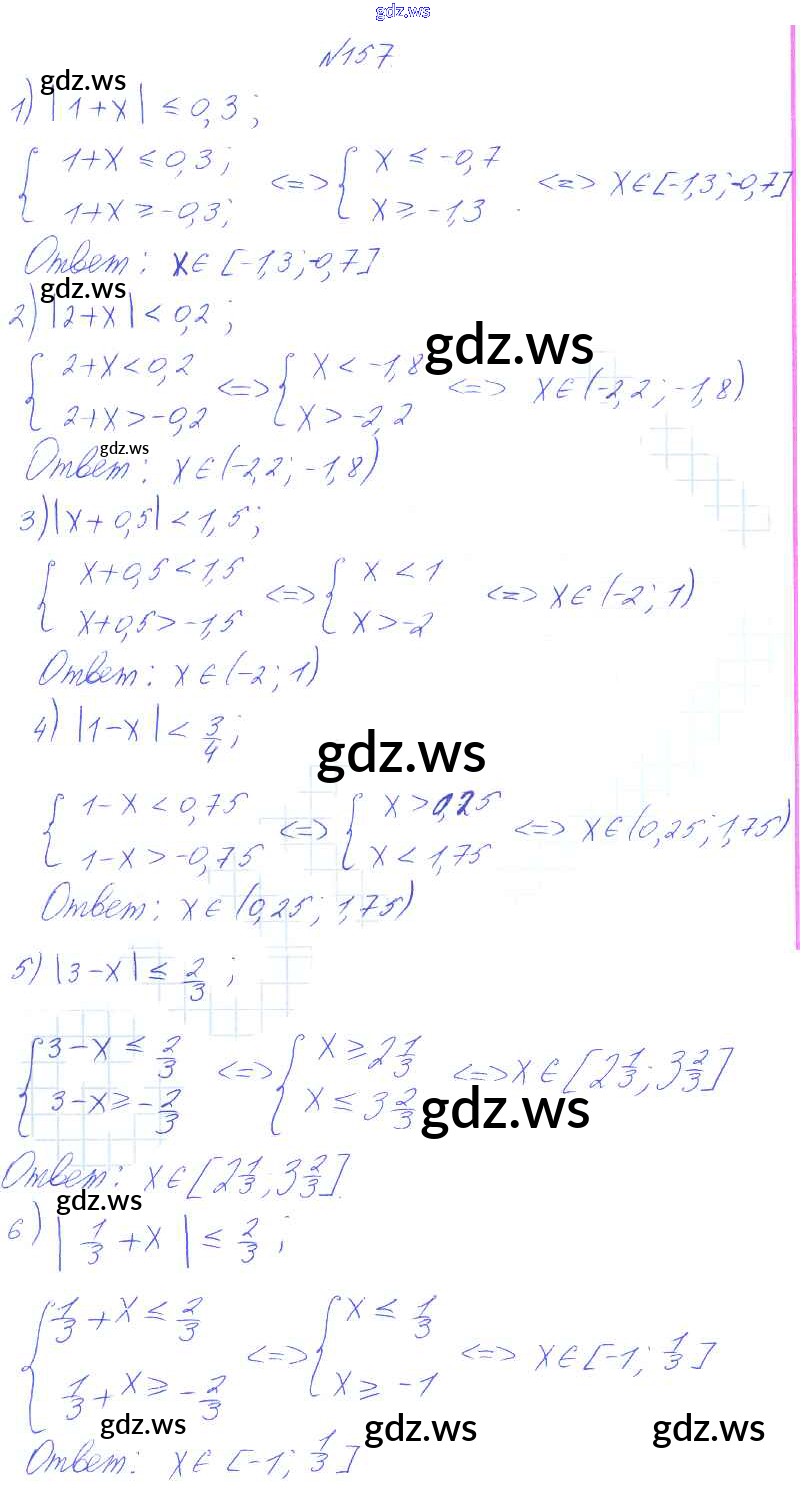 gdz.ws
№157.
gdz.ws
1) |1+x| ≤ 0,3;
{ 1+x ≤ 0,3; 1+x ≥ -0,3; <=> { x ≤ -0,7 x ≥ -1,3 . <=> x∈[-1,3;-0,7]
Ответ: x∈[-1,3;-0,7]
gdz.ws
2) |2+x| < 0,2;
gdz.ws
{ 2+x < 0,2 2+x > -0,2 <=> { x < -1,8 x > -2,2 <=> x∈(-2,2;-1,8).
gdz.ws
Ответ: x∈(-2,2;-1,8)
3) |x+0,5| < 1,5;
{ x+0,5 < 1,5 x+0,5 > -1,5 <=> { x < 1 x > -2 <=> x∈(-2;1)
Ответ: x∈(-2;1)
4) |1-x| < 3/4;
gdz.ws
{ 1-x < 0,75 1-x > -0,75 <=> { x > 0,25 x < 1,75 <=> x∈(0,25;1,75)
Ответ: x∈(0,25;1,75)
5) |3-x| ≤ 2/3;
{ 3-x ≤ 2/3 3-x ≥ -2/3 <=> { x ≥ 2 1/3 x ≤ 3 2/3 <=> x∈[2 1/3; 3 2/3]
gdz.ws
Ответ: x∈[2 1/3; 3 2/3].
gdz.ws
6) |1/3+x| ≤ 2/3;
{ 1/3+x ≤ 2/3 1/3+x ≥ -2/3 <=> { x ≤ 1/3 x ≥ -1 <=> x∈[-1; 1/3]
gdz.ws gdz.ws gdz.ws
Ответ: x∈[-1; 1/3]